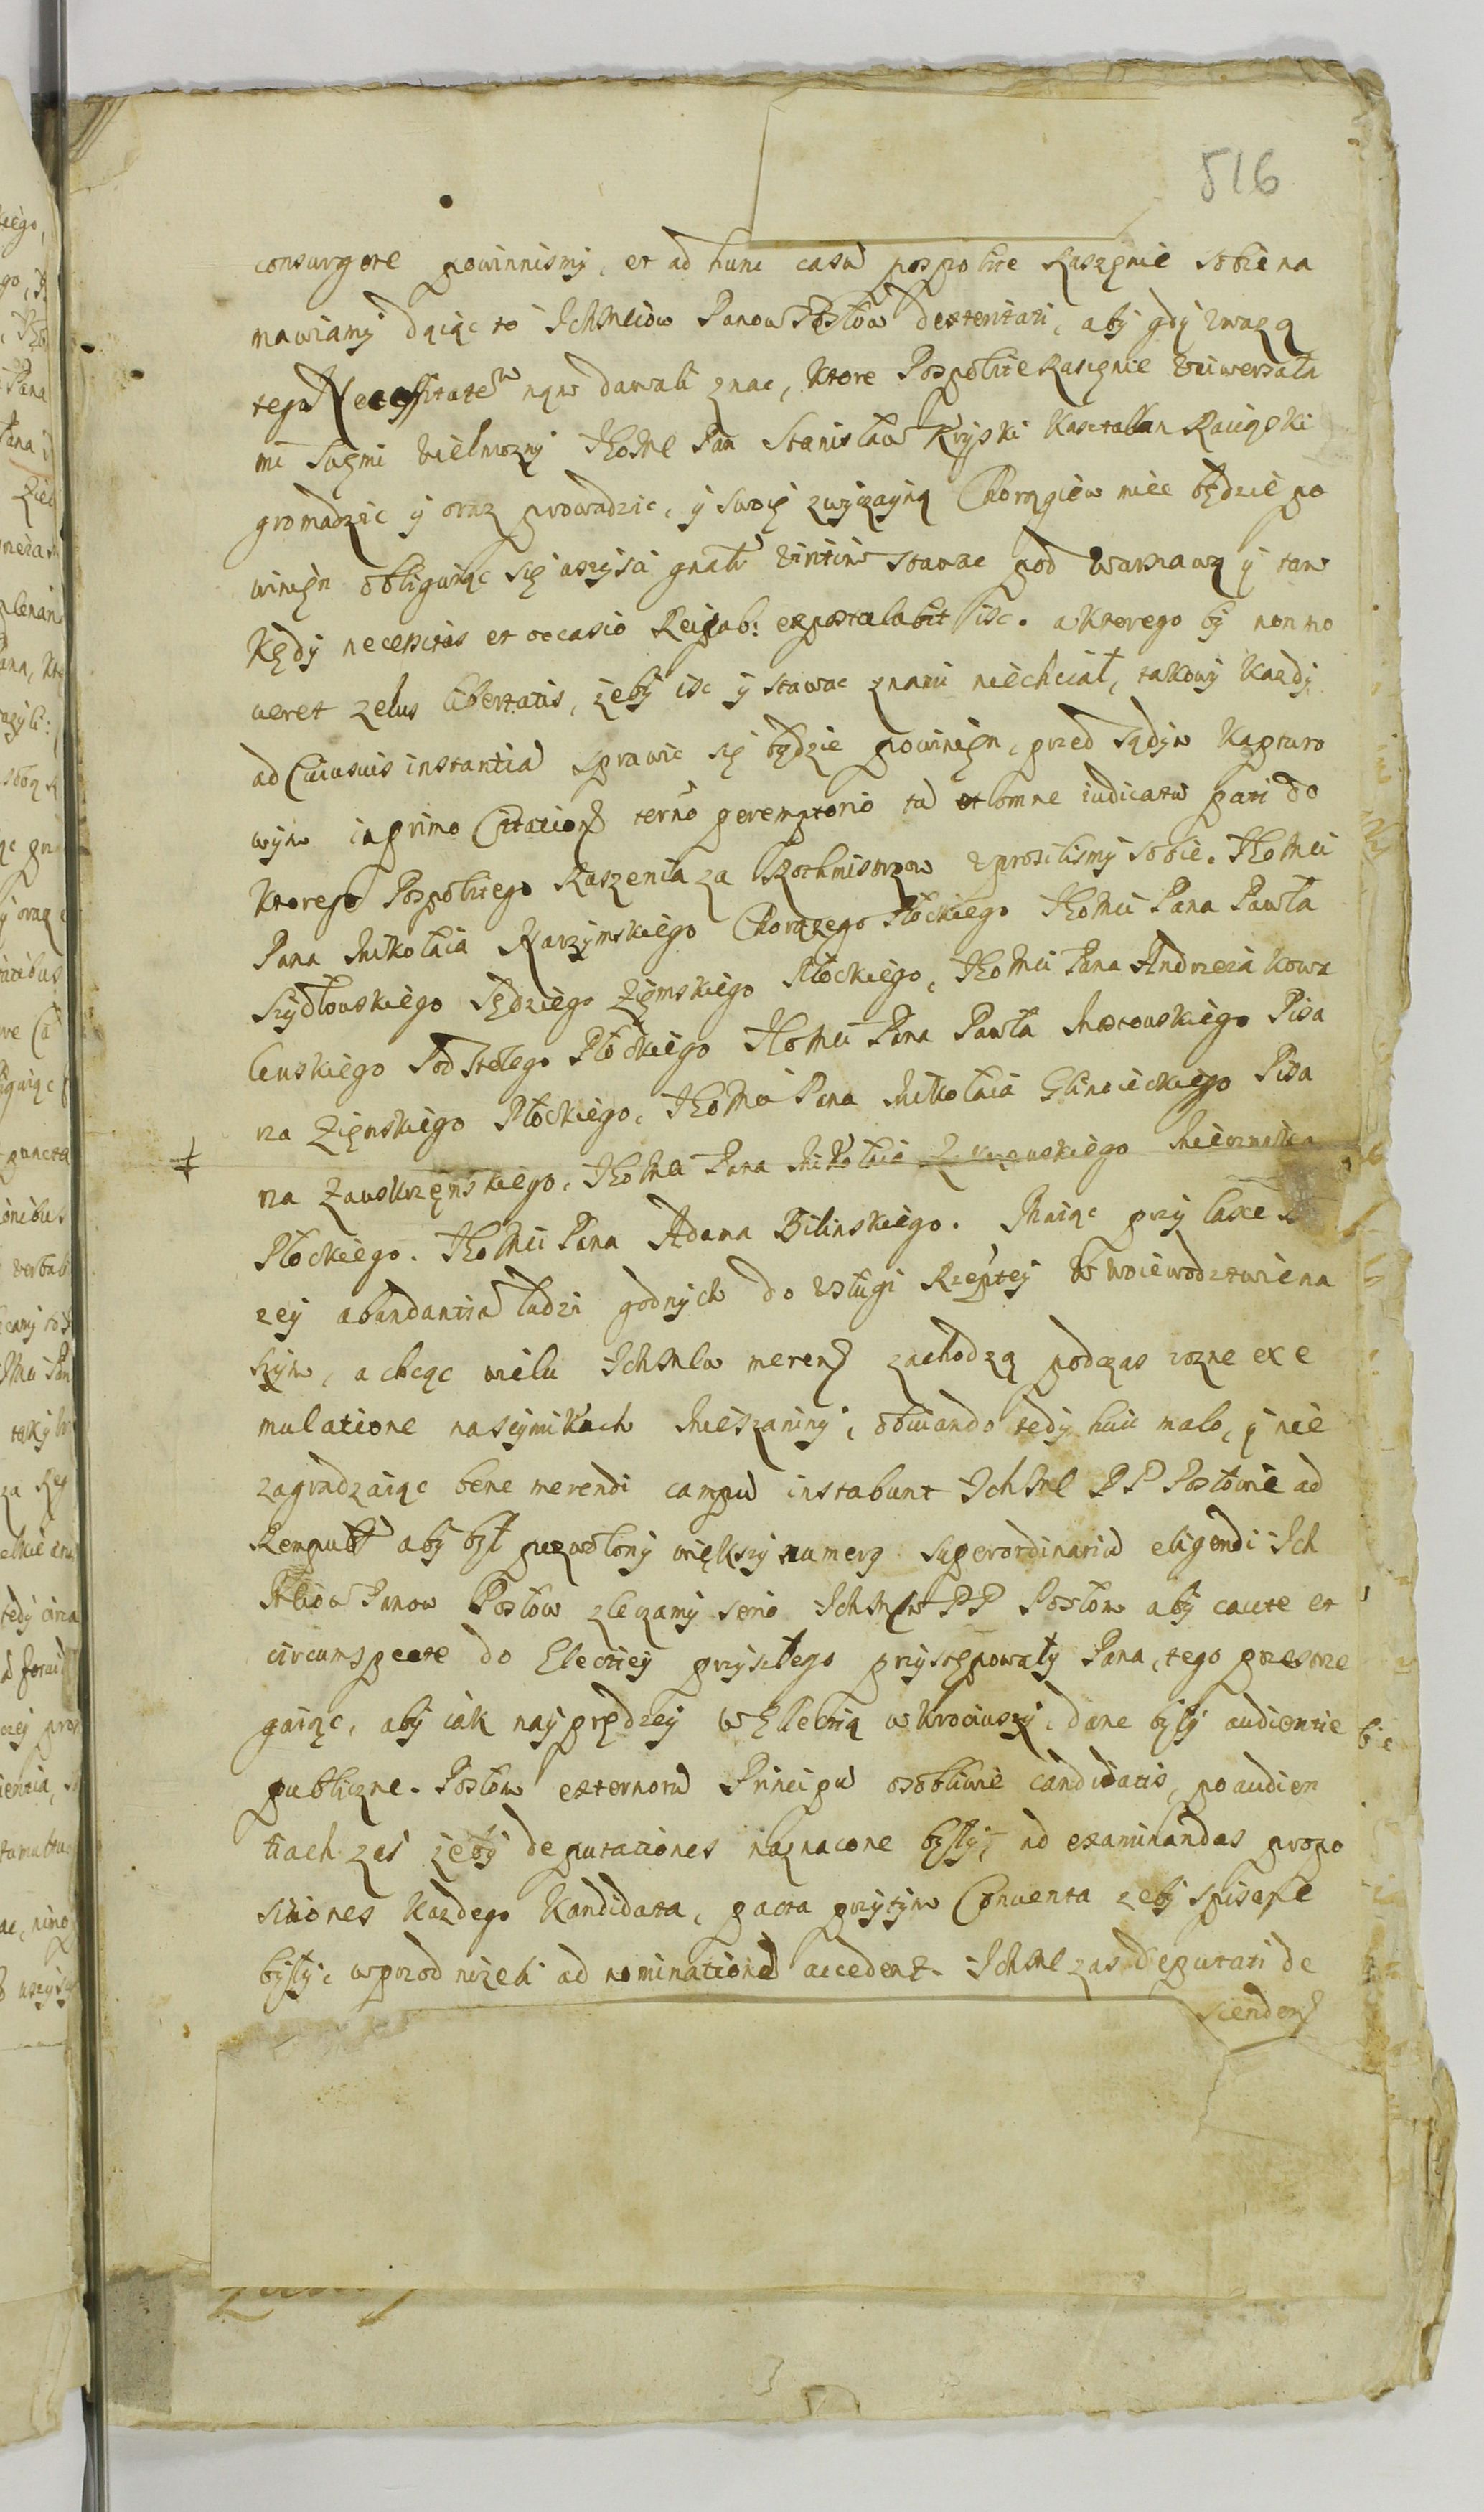 516
consurgere powinnismy, et ad hunc casu pospolite Ruszęnie sobie na
mawiamy dąiąc to IchMciow Panow Posłow dexteritati, aby gdy zwazą
tego Necessitatem nąm dawali znac, ktore Pospolite Rusięnie Vniwersała
mi swęmi Wielmozny IEgoMc Pan Stanisław Kryski Kasztallan Raciąski
gromadzic y oraz prowadzic, y swoię zwyczayną Chorągiew miec będzie po
winięn obliguiąc się wszysci gnalr viritim stawac pod Warszawą y tam
kędy necessitas et occasio Reipub: expostulabit isc. a ktorego by non mo
ueret zelus libertatis, zeby isc y stawac znami niechciał, takowy kazdy
ad Cuiusuis instantia sprawic się będzie powinięn, przed Sądym Kapturo
wym in primo Citationis termo peremptorio ta et omne iudicatu pati do
ktorego Pospolitego Ruszenia za Rochmistrzow uprosilismy sobie. IEgoMci
Pana Mikołaia Karzymskiego Chorązego Płockiego IEgoMci Pana Pawła
Szydłowskiego Sędziego Zięmskiego Płockiego, IEgoMci Pana Andrzeia Kowa
lewskiego Podstolego Płockiego IEgoMci Pana Pawła Mostowskiego Pisa
rza Zięmskiego Płockiego, IEgoMci Pana Mikołaia Glinoieckiego Pisa
rza Zawskrzęnskiego, IEgoMci Pana Mikołaia Miecznika
Płockiego. IEgoMci Pana Adama Bilinskiego. Maiąc przy lasce
zey abundantia ludzi godnych do usługi Rzeptey w Woiewodztwie na
szym, a chcąc wielu IchMciw meren zachodzą podczas rozne ex e
mulatione nasiymikach Mieszaniny, obuiando tedy huic malo, y nie
zagradzaiąc bene merendi campu instabunt IchMc PP Posłowie ad
Rempubt aby był pozwolony większy numerg superordinariu eligendi Ich
Mciow Panow Posłow zleczamy serio IchMciw PP Posłow aby caute et
circumspecte do Electiey przyszłego przystępowały Pana, tego przestrze
gaiąc, aby iak nayprędzey w Ellectią wkroczywszy, dane były audientie
publiczne. Posłow externoru Principu osobliwie candidatis, po audien
tiach zas zeby deputationes naznaczone były, ad examinandas propo
sitiones kazdego Kandidata, pacta przytym Conuenta zeby spisane
były, wprzod nizeli ad nominatione accedent. IchMc zas deputati de
sciendon